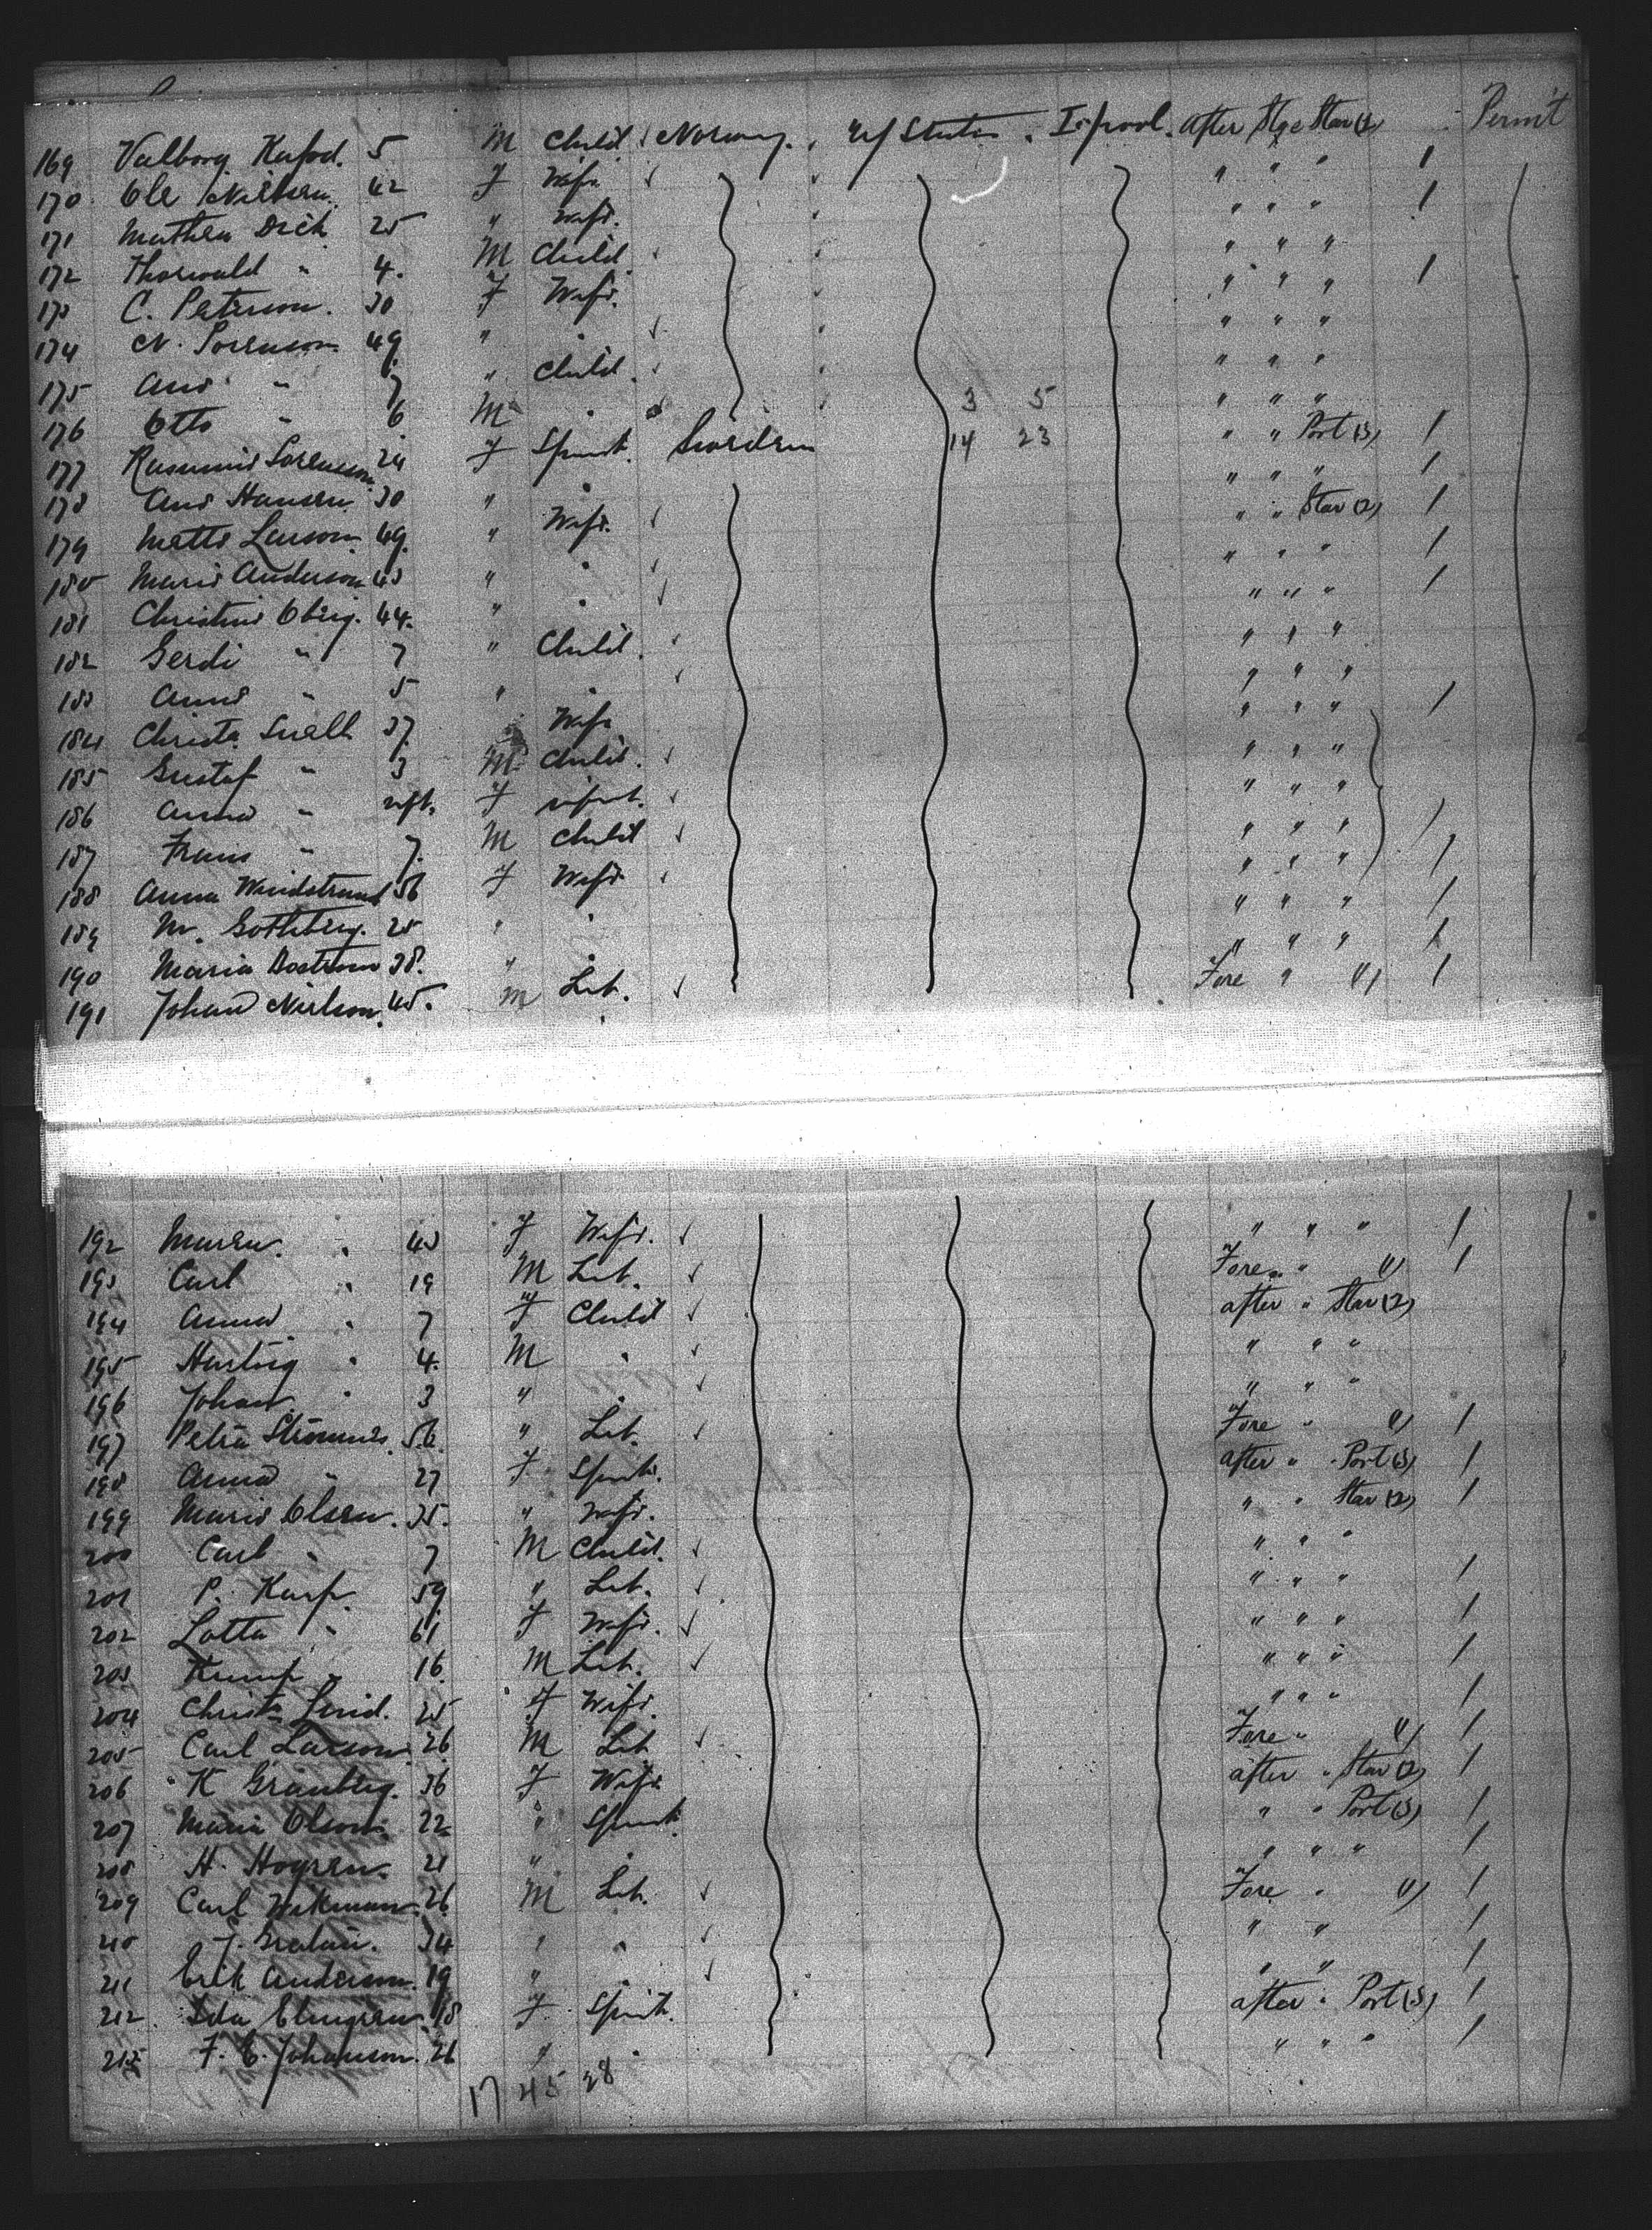 169 Valborg Kafod. 5 M Child Norway. U/States. L'pool. After Stge Star (2) Permit
170 Ole Nielsen. 42 F Wife " " " /
171 Mathea Dick 25 " Wife. " " " /
172 Thorwald " 4. M Child. " " "
173 C. Peterson. 30 F Wife. " " " /
174 N. Sorenson. 49. " " " " "
175 Ane " 7 " Child. " " "
176 Otto " 6 M " 3 5 " " "
177 Sorenson 24 F Spinst. Sweden 14 23 " " Port (3) /
178 Ane Hansen 30 " " " " " /
179 Matts Larson. 49. " Wife. " " Star (2) /
180 Marie Anderson 43 " " " " " /
181 Christine Oberg. 44. " " " " " /
182 Gerdi " 7 " Child. " " "
183 Anna " 5 " " " " "
184 Christa. Snell 37. Wife " " " /
185 Gustaf " 3 M Child. " " "
186 Anna " inft. F infant. " " "
187 Frans " 7. M Child " " " /
188 Anna 56 F Wife " " " /
189 M. Gothberg. 25 " " " " " /
190 Maria Bostrom 38. " " " " " /
191 Johan Nielson. 45. M Lab. Fore " (1) /
192 Maren. " 43 F Wife. " " " /
193 Carl " 19 M Lab. Fore " (1) /
194 Anna " 7 F Child after " Star (2)
195 Hartvig " 4. M " " " "
196 Johan. " 3 " " " " "
197 Petra 56. " Lab. Fore " (1) /
198 Anna " 27 F Spinst. after " Port (3) /
199 Marie Olsen. 35. " Wife. " " Star (2) /
200 Carl " 7 M Child. " " "
201 P. Karp. 59. " Lab. " " " /
202 Lotta " 61 F Wife. " " " /
203 " 16. M Lab. " " " /
204 Christa Lund. 25 F Wife. " " " /
205 Carl Larson. 26 M Lab Fore " (1) /
206 K Granberg. 36 F Wife after " Star (2) /
207 Maria Olson. 22 " Spinst. " " Port (3) /
208 H. Hogren. 21 " " " " " /
209 Carl Wikman. 26 M Lab. Fore " (1) /
210 J. 34 " " " " /
211 Erik Anderson. 19 " " " " /
212 Ida Elmgren. 18 F Spinst. after " Port (3) /
213 F. E. Johanson. 26 " " " " " /
17 45 28